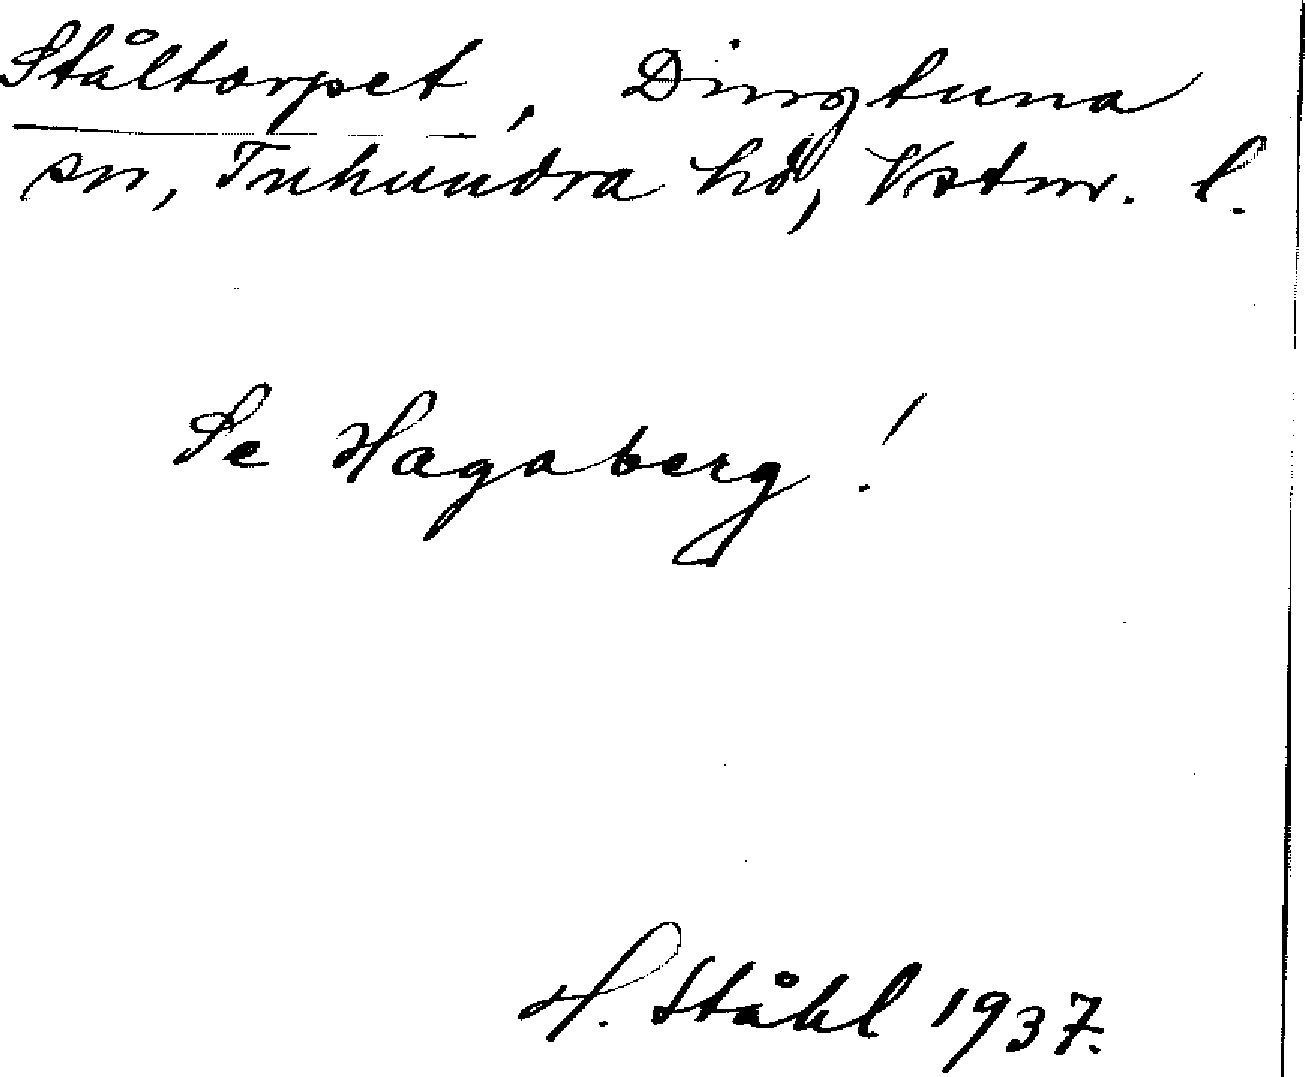 Ståltorpet, Dingtuna
sn, Tuhundra hd, Vstm. l.
Se Hagaberg!
H. Ståhl 1937.